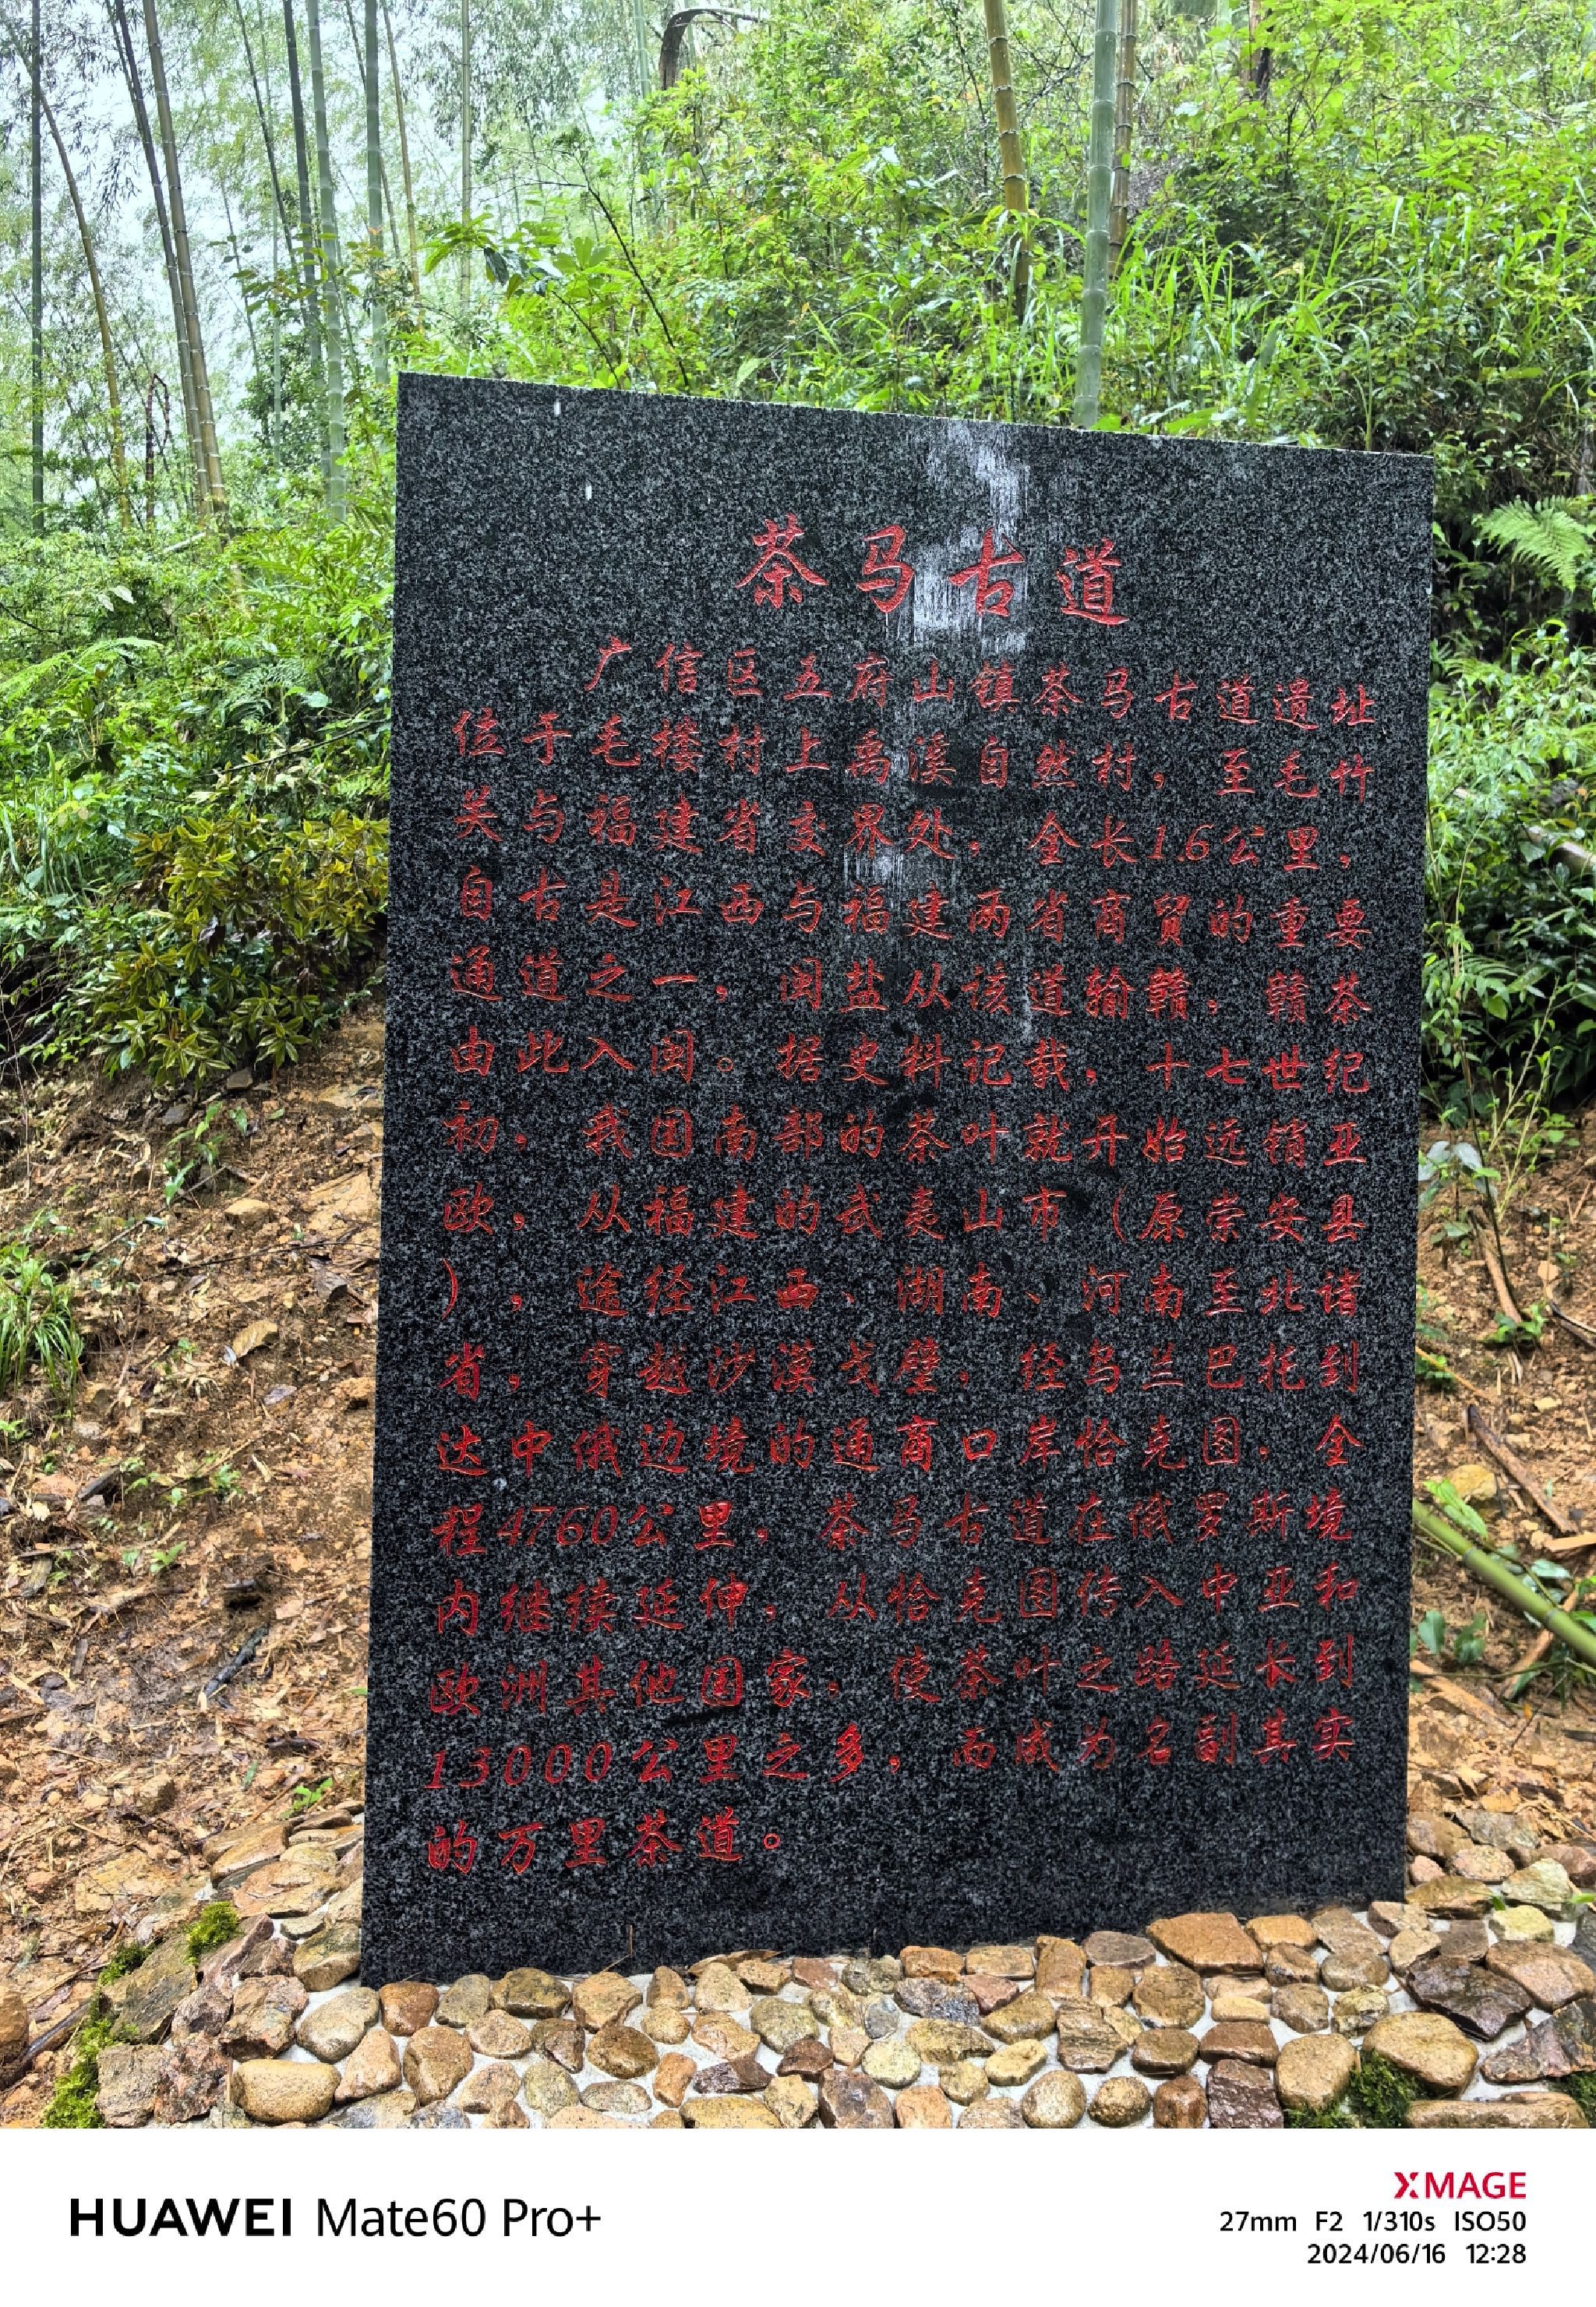 茶马古道
广信区五府山镇茶马古道遗址
位于毛楼村上禹溪自然村，至毛竹
关与福建省交界处，全长1.6公里，
自古是江西与福建两省商贸的重要
通道之一，闽盐从该道输赣，赣茶
由此入闽。据史料记载，十七世纪
初，我国南部的茶叶就开始远销亚
欧，从福建的武夷山市（原崇安县
），途经江西、湖南、河南至北诸
省，穿越沙漠戈壁，经乌兰巴托到
达中俄边境的通商口岸恰克图，全
程4760公里，茶马古道在俄罗斯境
内继续延伸，从恰克图传入中亚和
欧洲其他国家，使茶叶之路延长到
13000公里之多，而成为名副其实
的万里茶道。
HUAWEI Mate60 Pro+
XMAGE
27mm F2 1/310s ISO50
2024/06/16 12:28